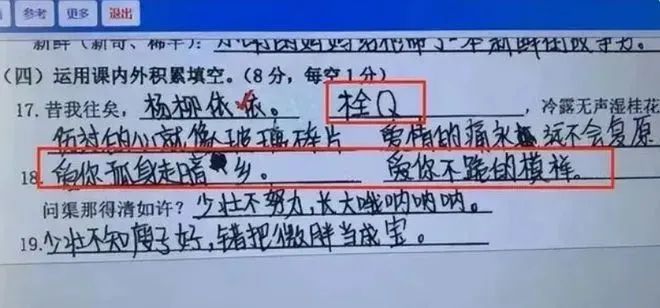 参考 更多 退出
新鲜（新奇、稀罕）：
（四）运用课内外积累填空。（8分，每空1分）
17. 昔我往矣，杨柳依依。 栓Q ，冷露无声湿桂花
伤过的心就像玻璃碎片 爱情的痛永远不会复原
18. 爱你孤身走暗乡。 爱你不跪的模样。
问渠那得清如许？少壮不努力，长大哦呐呐呐。
19.少壮不知瘦子好，错把微胖当成宝。